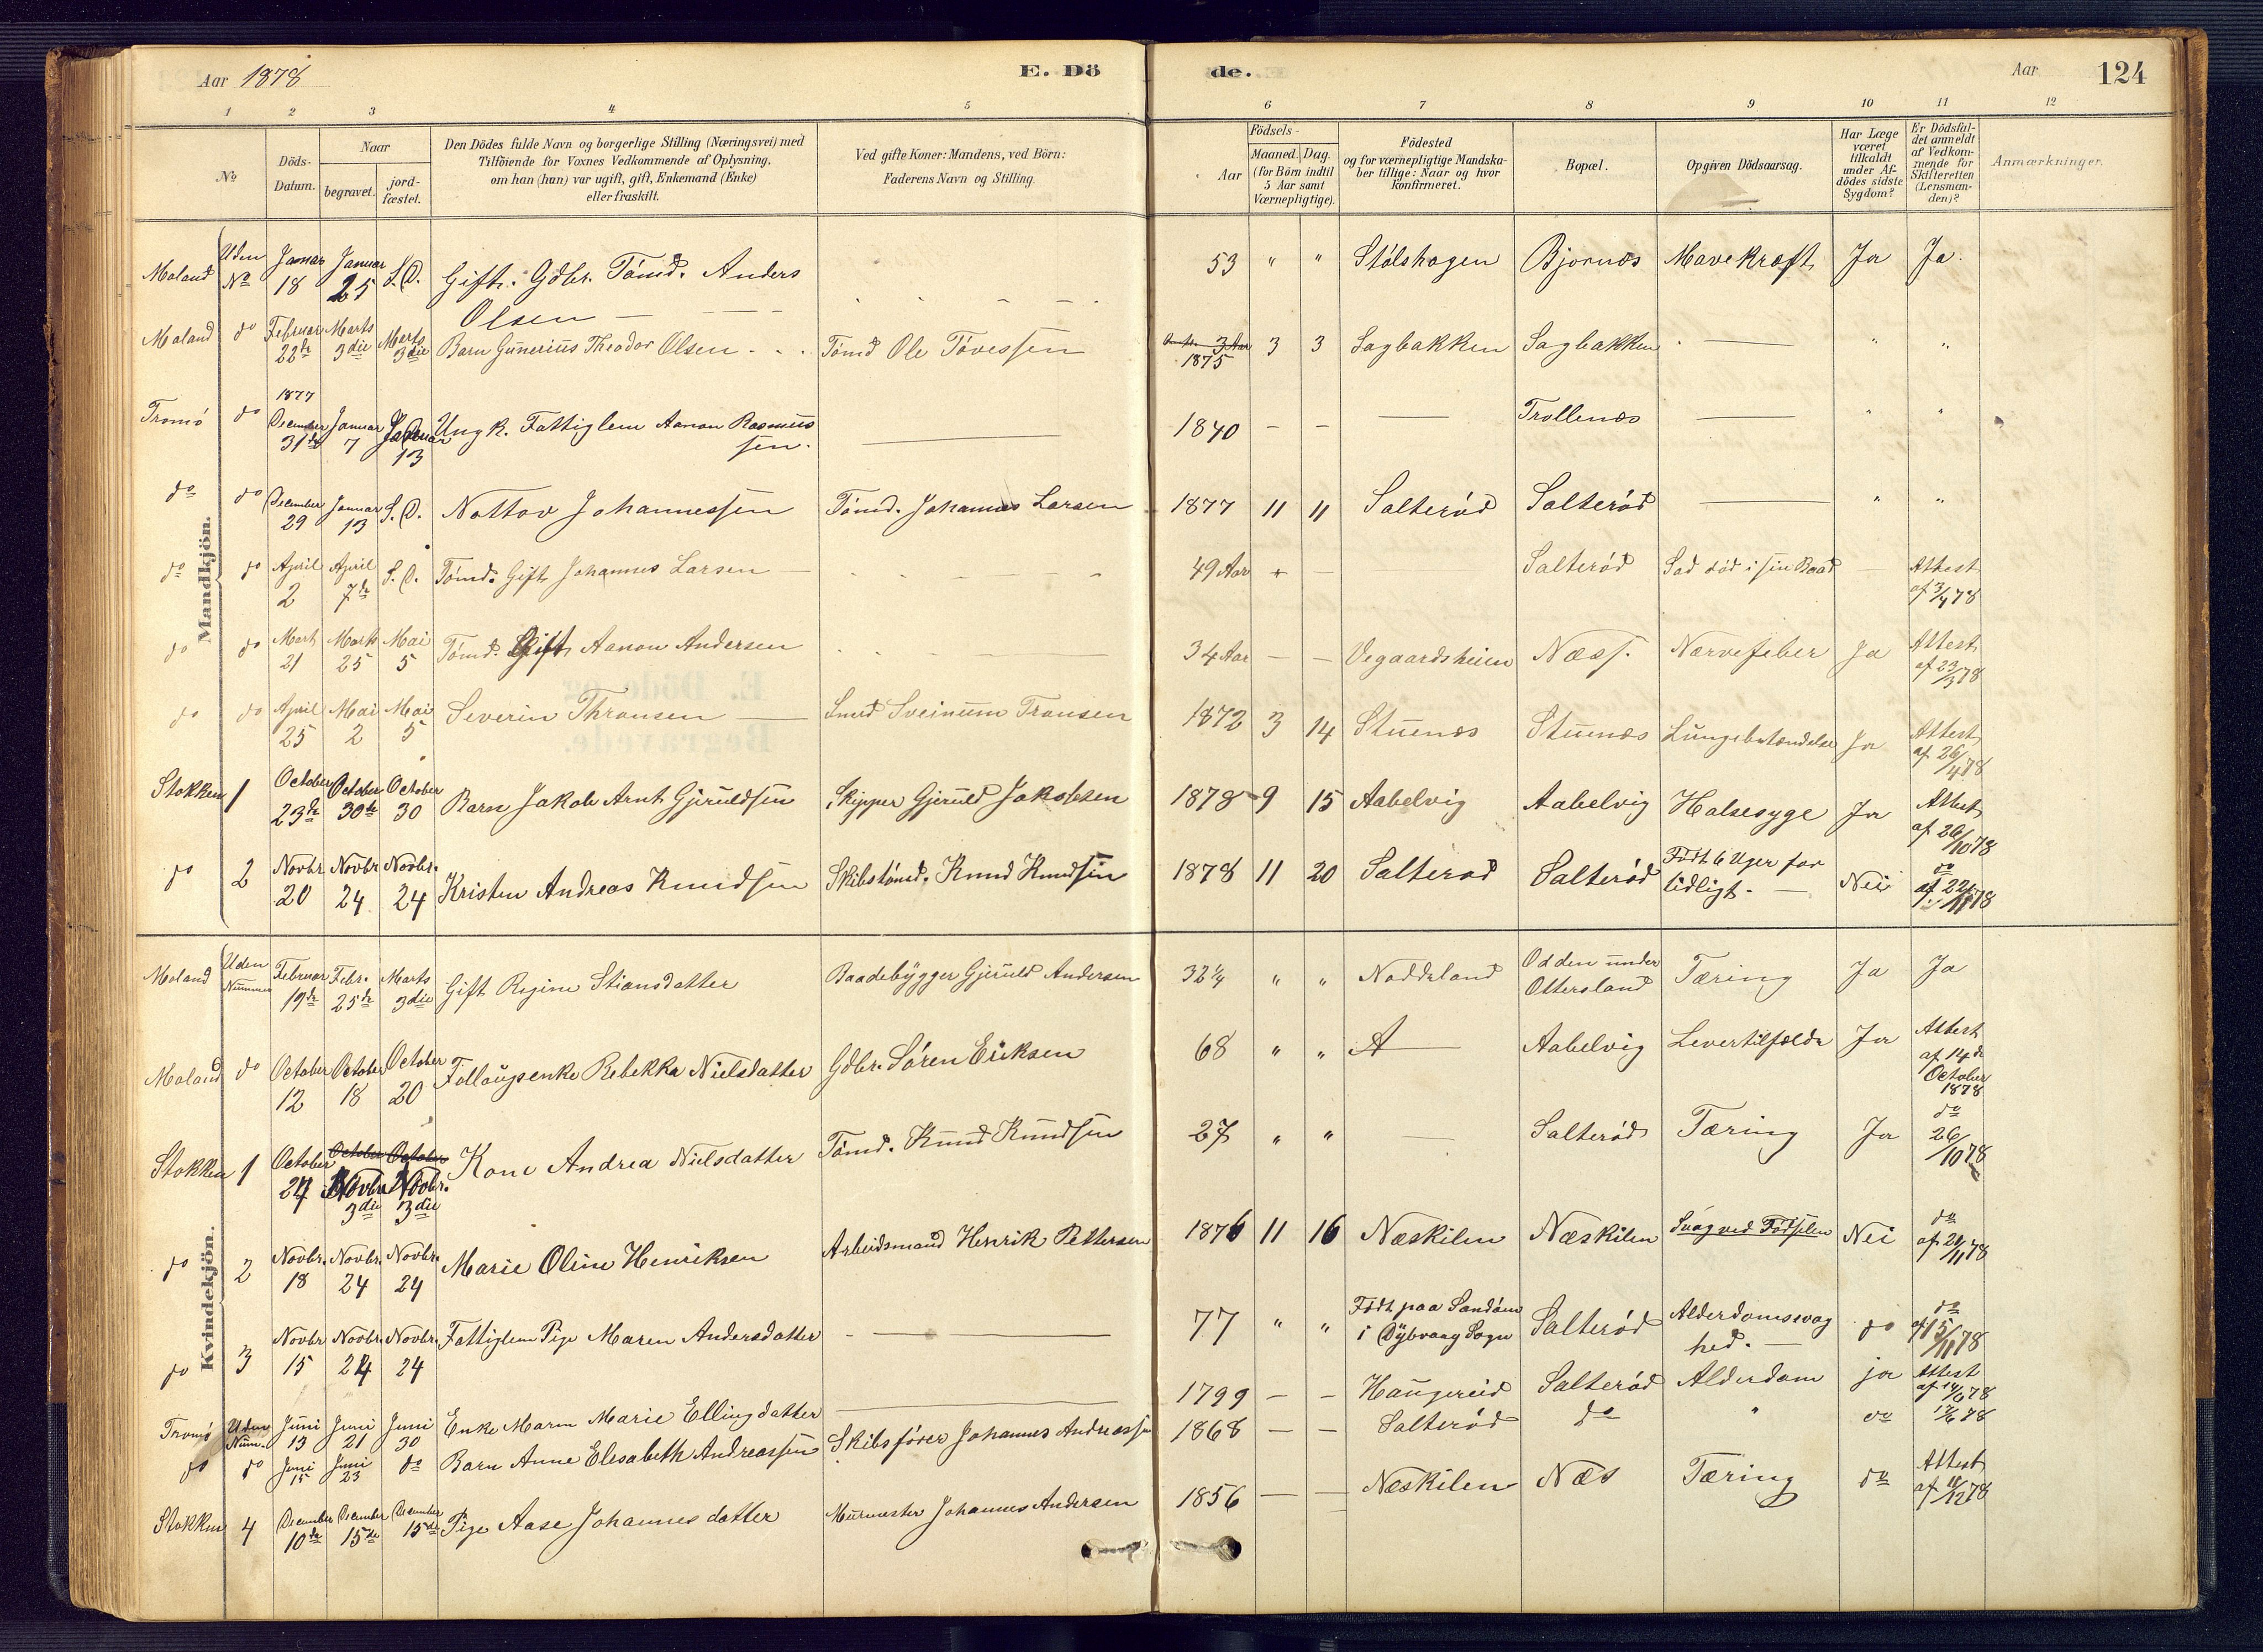 Aar 1878
E. Dö
de.
Aar
124
1 2 3 4 5 6 7 8 9 10 11 12
No
Döds-Datum.
Naar
begravet.
jord-fæstet.
Den Dödes fulde Navn og borgerlige Stilling (Næringsvei) med
Tilföiende for Voxnes Vedkommende af Oplysning,
om han (hun) var ugift, gift, Enkemand (Enke)
eller fraskilt.
Ved gifte Koner: Mandens, ved Börn:
Faderens Navn og Stilling.
Födsels-
Aar
Maaned. Dag.
(for Börn indtil
5 Aar samt
Værnepligtige).
Födested
og for værnepligtige Mandska-
ber tillige: Naar og hvor
konfirmeret.
Bopæl.
Opgiven Dödsaarsag.
Har Læge
været
tilkaldt
under Af-
dödes sidste
Sygdom?
Er Dödsfal-
det anmeldt
af Vedkom-
mende for
Skifteretten
(Lensman-
den)?
Anmærkninger.
Mandkjön.
Moland Uden No Januar 18 Januar 25 S.D. Gift. Gdbr. Tömd. Anders Olsen 53 " " Stölshagen Bjornæs Mavekræft Ja Ja.
Moland do Februar 22de Marts 3die Marts 3die Barn Gunerius Theodor Olsen Tömd Ole Tövessen 1875 3 3 Sagbakken Sagbakken " "
Tromö do 1877 December 31te Januar 7 Januar 13 Ungk. Fattiglem Aanon Rasmussen. 1840 Trollenæs " "
do do December 29 Januar 13 S.D. Nottov Johannessen Tömd. Johannes Larsen 1877 11 11 Salteröd Salteröd " "
do do April 2 April 7de S.D. Tömd. Gift Johannes Larsen 49 Aar Salteröd Sad död i sin Baad Attest af 3/4 78
do do Mart 21 Marts 25 Mai 5 Tömd. Gift Aanon Andersen 34 Aar Vegaardsheien Næss. Nervefeber Ja Attest af 23/3 78
do do April 25 Mai 2 Mai 5 Severin Thronsen Smed Sveinum Tronsen 1872 3 14 Stuenæs Stuenæs Lungebetændelse Ja Attest af 26/4 78
Stokken 1 October 23de October 30te October 30 Barn Jakob Arnt Gjeruldsen Skipper Gjeruld Jakobsen 1878 9 15 Aabelvig Aabelvig Halsesyge Ja Attest af 26/10 78
do 2 Novbr 20 Novbr 24 Novbr. 24 Kristen Andreas Knudsen Skibstömd. Knud Knudsen 1878 11 20 Salterod Salteröd Födt 6 Uger for tidligt. Nei do af 22/11 78
Kvindekjön.
Moland Uden Nummer Februar 19de Febr. 25de Marts 3die Gift Regine Stiansdatter Baadebygger Gjeruld Andersen 32 1/4 " " Noddeland Odden under Ottersland Tæring Ja Ja
Moland do October 12 October 18 October 20 Follaugsenke Rebekka Nielsdatter Gdbr. Sören Eriksen 68 " " Aabelvig Levertilfælde Ja Attest af 14de October 1878
Stokken 1 October 27 October October Novbr 3die Novbr. 3die Kone Andrea Nielsdatter Tömd. Knud Knudsen 27 " " Salteröd Tæring Ja do 26/10 78
do 2 Novbr. 18 Novbr. 24 Novbr. 24 Marie Oline Henriksen Arbeidsmand Henrik Pettersen 1876 11 16 Næskilen Næskilen Svag ved Födselen Nei do af 21/11 78
do 3 Novbr 15 Novbr. 24 Novbr. 24 Fattiglem Pige Maren Andersdatter 77 " " Födt paa Sandöen i Dybvaag Sogn Salteröd Alderdomssvaghed. do do af 15/11 78
Tromö Uden Num. Juni 13 Juni 21 Juni 30 Enke Maren Marie Ellingsdatter 1799 Haugereid Salteröd Alderdom ja Attest af 14/6 78
do do Juni 15 Juni 23 do Barn Anne Elisabeth Andreassen Skibsförer Johannes Andreassen 1868 Salteröd do " do 78
Stokken 4 December 10de December 15de December 15de Pige Aase Johannesdatter Murmester Johannes Andersen 1856 Næskilen Næs Tæring do Attest af 12 78